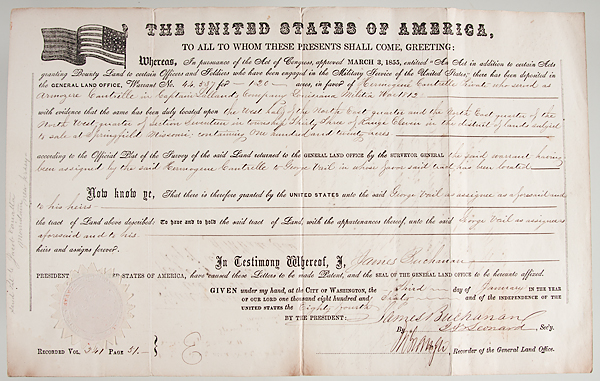 THE UNITED STATES OF AMERICA,
TO ALL TO WHOM THESE PRESENTS SHALL COME, GREETING:
Whereas, In pursuance of the Act of Congress, approved MARCH 3, 1855, entitled "An Act in addition to certain Acts
granting Bounty Land to certain Officers and Soldiers who have been engaged in the Military Service of the United States," there has been deposited in
the GENERAL LAND OFFICE, Warrant No. for 120 acres, in favor of Private who served as
in Captain Company Louisiana Militia War 1812
with evidence that the same has been duly located upon the West half of the North East quarter and the North East quarter of the
North West quarter of Section Seventeen in township Thirty Three of Range Eleven in the district of lands subject
to sale at Springfield Missouri containing One hundred and twenty acres
according to the Official Plat of the Survey of the said Land returned to the GENERAL LAND OFFICE by the SURVEYOR GENERAL the said warrant having
been assigned by the said to George Vail in whose favor said tract has been located
Now know ye, That there is therefore granted by the UNITED STATES unto the said George Vail as assignee as aforesaid and
to his heirs
the tract of Land above described: To have and to hold the said tract of Land, with the appurtenances thereof, unto the said George Vail as assignee as
aforesaid and to his
heirs and assigns forever.
In Testimony Whereof, I, James Buchanan
PRESIDENT STATES OF AMERICA, have caused these Letters to be made Patent, and the SEAL OF THE GENERAL LAND OFFICE to be hereunto affixed.
GIVEN under my hand, at the CITY OF WASHINGTON, the third day of January IN THE YEAR
OF OUR LORD one thousand eight hundred and Sixty and of the INDEPENDENCE OF THE
UNITED STATES the Eighty fourth
BY THE PRESIDENT: James Buchanan
By Leonard Sec'y.
Recorder of the General Land Office.
RECORDED VOL. 241 PAGE 51